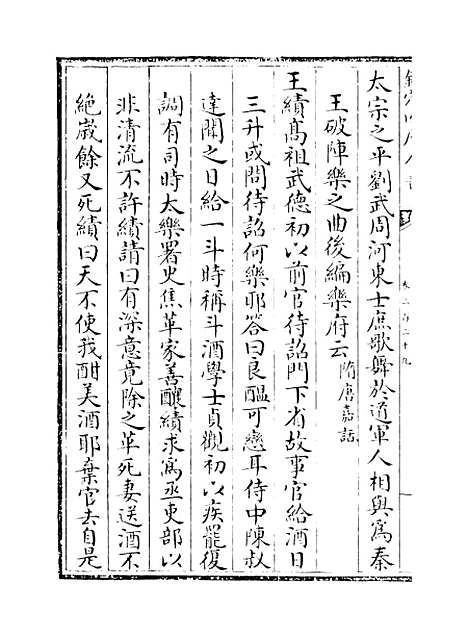 太宗之平劉武周河東士庶歌舞於道軍人相與為秦
王破陣樂之曲後編樂府云隋唐嘉話
王績髙祖武德初以前官待詔門下省故事官給酒日
三升或問待詔何樂耶答曰良醖可戀耳侍中陳叔
達聞之日給一斗時稱斗酒學士貞觀初以疾罷復
調有司時太樂署史焦革家善醸績求為丞吏部以
非清流不許績請曰有深意竟除之革死妻送酒不
絶歳餘又死績曰天不使我酣美酒耶棄官去自是
卷二百二十九